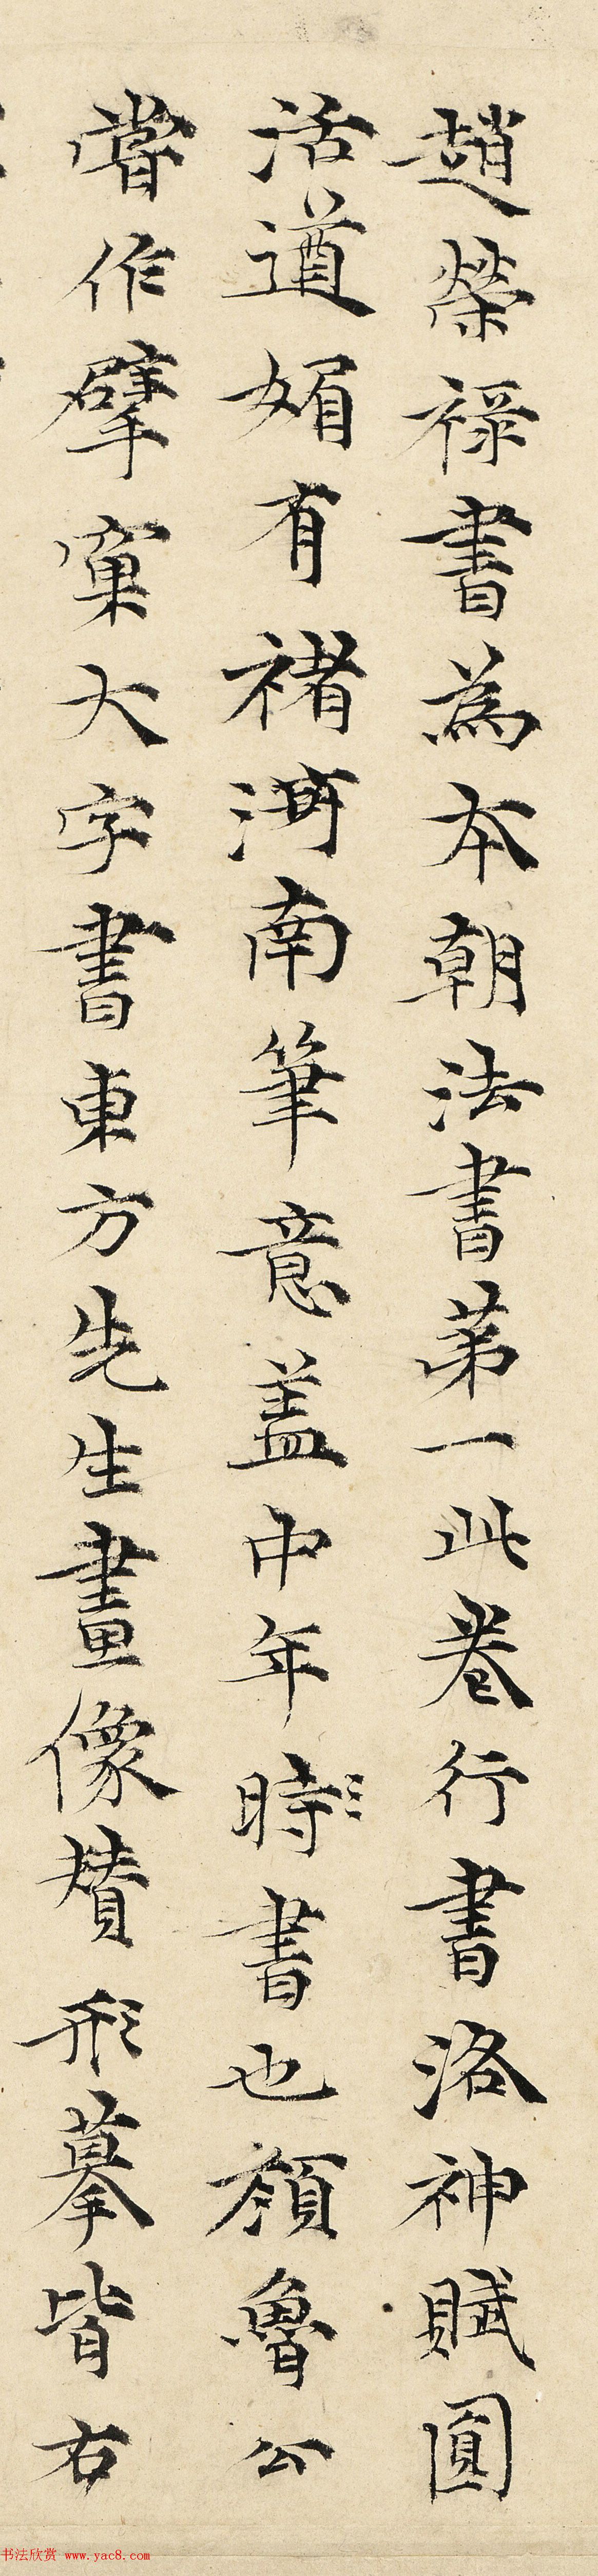 趙榮祿書為本朝法書第一此卷行書洛神賦圓
活遒媚有褚河南筆意蓋中年時書也顏魯公
嘗作擘窠大字書東方先生畫像贊形摹皆右
书法欣赏 www.yac8.com